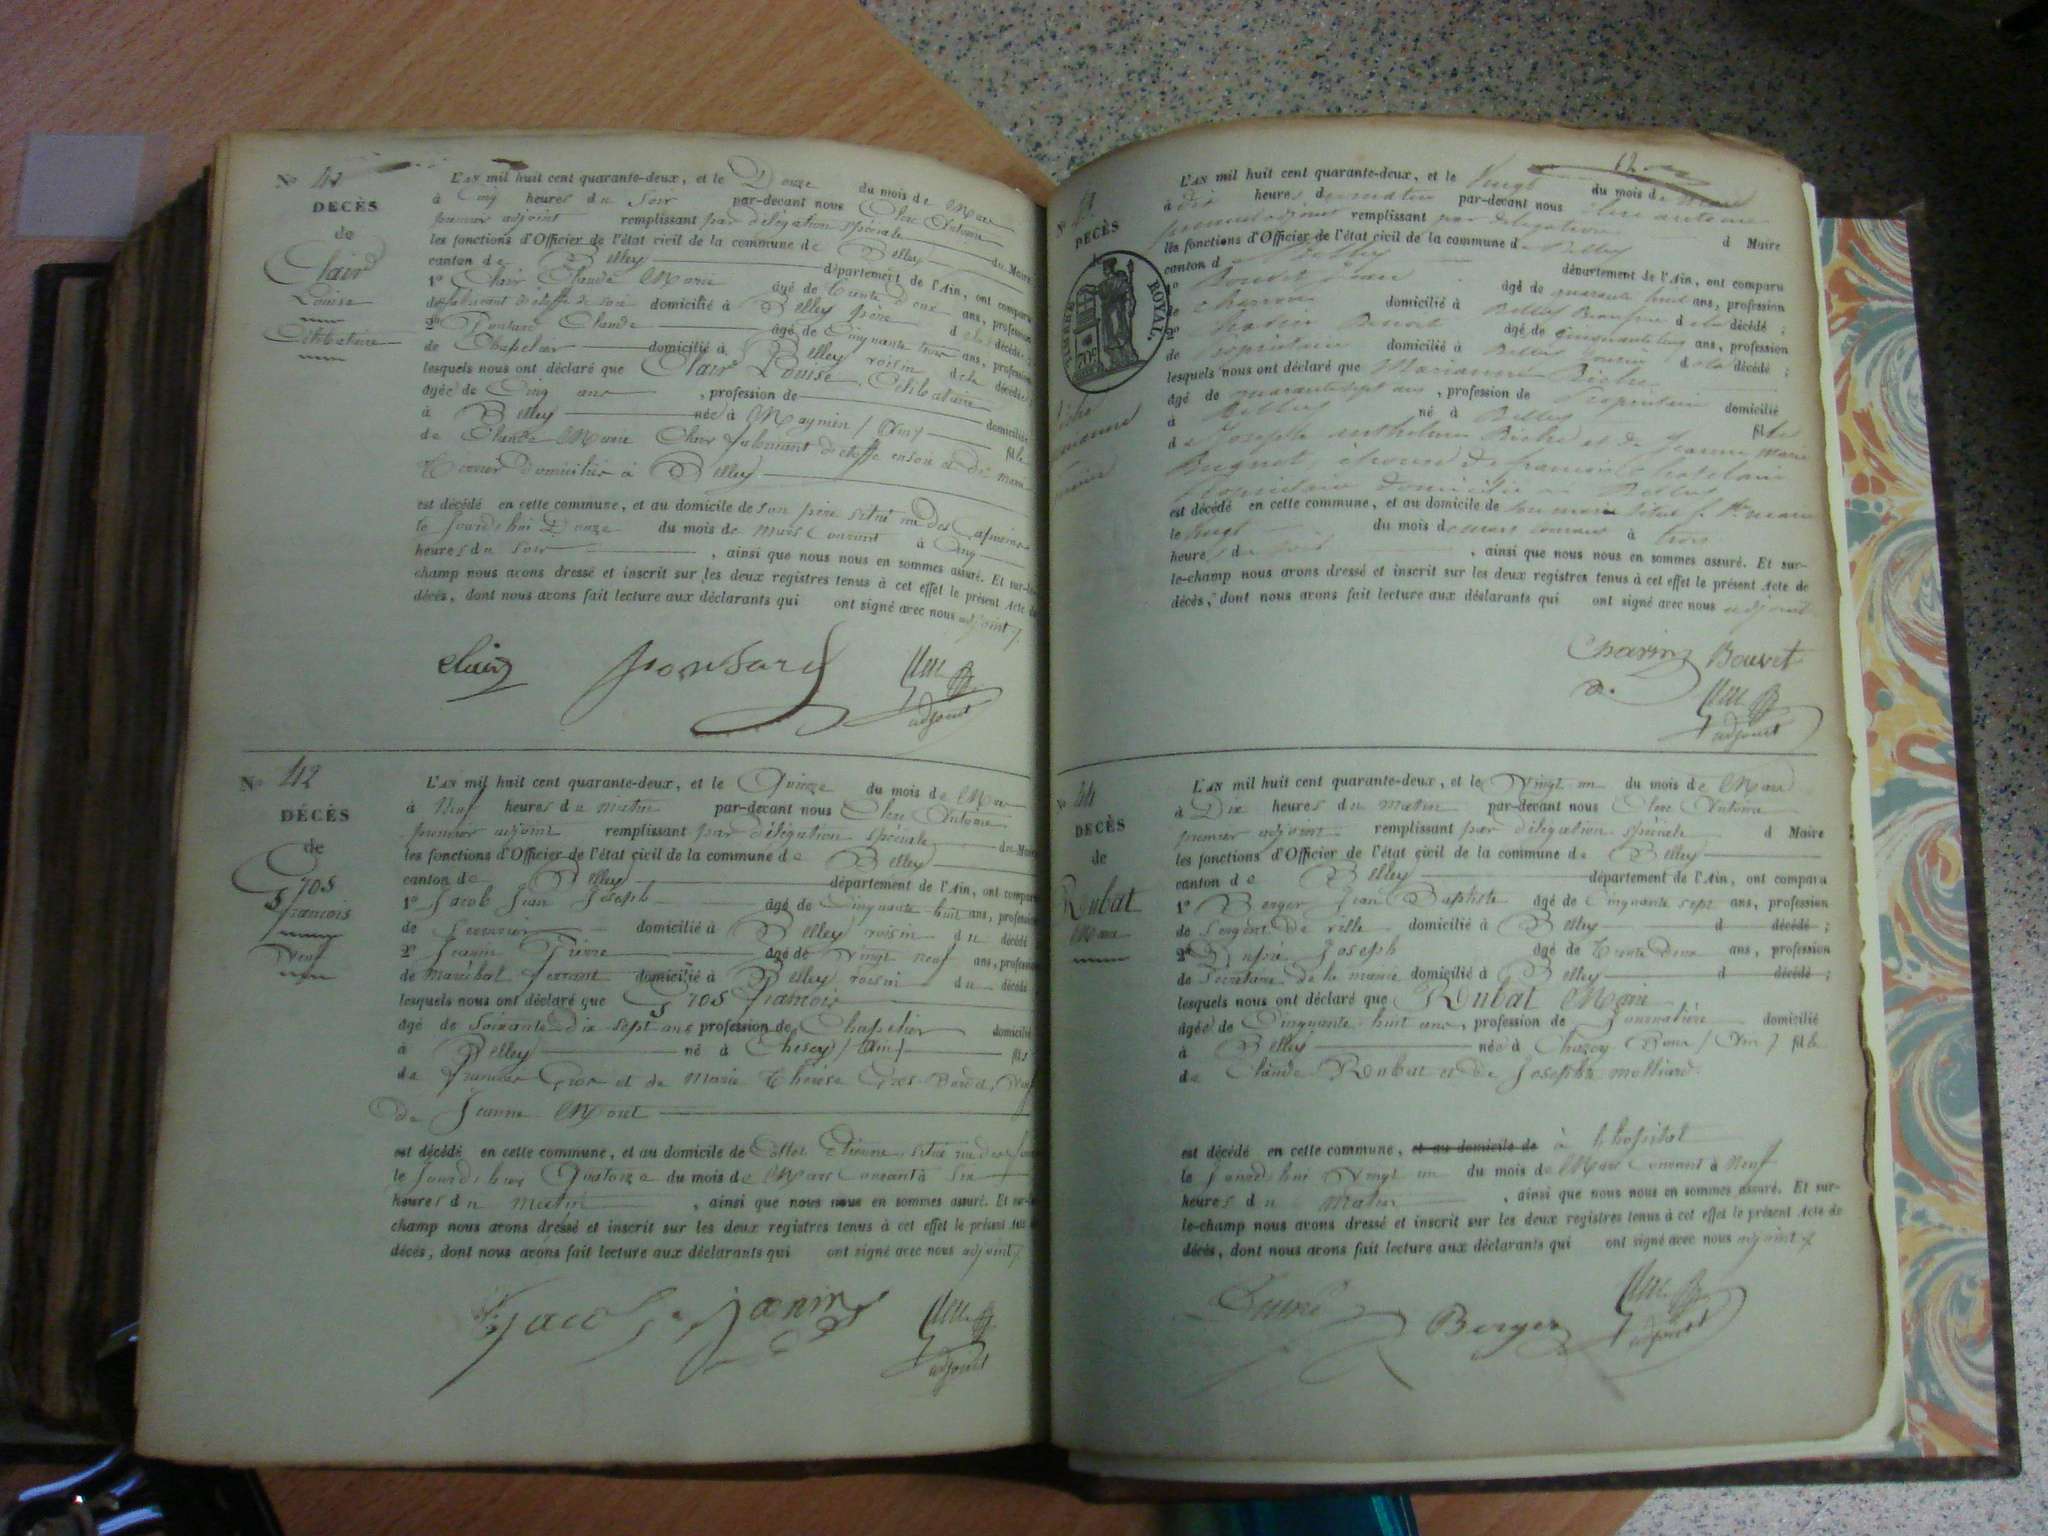 N° 41
DECÈS
de
Clair
Louise
Célibataire
L'AN mil huit cent quarante-deux, et le Douze du mois de Mars
à Cinq heures du Soir par-devant nous Clerc Antoine
premier adjoint remplissant par délégation spéciale du Maire
les fonctions d'Officier de l'état civil de la commune de Belley
canton de Belley département de l'Ain, ont comparu
1° Clair Claude Marie âgé de trente Deux ans, profession
de fabricant d'étoffe de soie domicilié à Belley père d ela décédée;
2° Ponsard Claude âgé de Cinquante trois ans, profession
de Chapelier domicilié à Belley voisin dela décédée;
lesquels nous ont déclaré que Clair Louise, Célibataire
agée de Cinq ans, profession de domicilié
à Belley née à (Ain) fille
de Claude Marie Clair fabricant d'étoffe en soie et de Marie
domiciliés à Belley
est décédé en cette commune, et au domicile de son père situé rue des
le jourd'hui Douze du mois de Mars Courant à Cinq
heures du Soir, ainsi que nous nous en sommes assuré. Et sur-le-
champ nous avons dressé et inscrit sur les deux registres tenus à cet effet le présent Acte de
décès, dont nous avons fait lecture aux déclarants qui ont signé avec nous adjoint
Clair Ponsard Clerc
adjoint
N° 42
DÉCÈS
de
Gros
françois
Veuf
L'AN mil huit cent quarante-deux, et le Quinze du mois de Mars
à Neuf heures du matin par-devant nous Clerc Antoine
premier adjoint remplissant par délégation spéciale du Maire
les fonctions d'Officier de l'état civil de la commune de Belley
canton de Belley département de l'Ain, ont comparu
1° Jacob Jean Joseph âgé de Cinquante huit ans, profession
de Serrurier domicilié à Belley voisin du décédé
2° Janin Pierre âgé de vingt neuf ans, profession
de maréchal ferrant domicilié à Belley voisin du décédé
lesquels nous ont déclaré que Gros françois
âgé de soixante dix sept ans profession de Chapelier domicilié
à Belley né à Chesey (Ain) fils
de françois Gros et de Marie Thérèse Gros Veuf
de Jeanne Moret
est décédé en cette commune, et au domicile de Etienne situé rue des
le jourd'hui Quatorze du mois de Mars courant à Six
heures du matin, ainsi que nous nous en sommes assuré. Et sur-le-
champ nous avons dressé et inscrit sur les deux registres tenus à cet effet le présent Acte de
décès, dont nous avons fait lecture aux déclarants qui ont signé avec nous adjoint
Jacob Janin Clerc
adjoint
12
N° 43
DECÈS
TIMBRE ROYAL
70c
L'AN mil huit cent quarante-deux, et le Vingt du mois de Mars
à dix heures du matin par-devant nous Clerc antoine
premier adjoint remplissant par délégation d Maire
les fonctions d'Officier de l'état civil de la commune de Belley
canton d Belley département de l'Ain, ont comparu
1° Bouvet Jean âgé de quarante huit ans, profession
de charron domicilié à Belley Beaufrère d ela décédé;
2° Charin Benoit âgé de cinquante ans, profession
de Propriétaire domicilié à Belley cousin d ela décédé;
lesquels nous ont déclaré que Marianne Riche
âgé de quarante sept ans, profession de Propriétaire domicilié
à Belley né à Belley fille
d e Joseph anthelme Riche et de Jeanne Marie
Buynet, épouse de françois Chatelain
Propriétaire domicilié à Belley
est décédé en cette commune, et au domicile de son mari situé
le Vingt du mois de mars courant à trois
heures du, ainsi que nous nous en sommes assuré. Et sur-
le-champ nous avons dressé et inscrit sur les deux registres tenus à cet effet le présent Acte de
décès, dont nous avons fait lecture aux déclarants qui ont signé avec nous adjoint
Charin Bouvet
Clerc
adjoint
N° 44
DECÈS
de
Rubat
Marie
L'AN mil huit cent quarante-deux, et le Vingt un du mois de Mars
à Dix heures du matin par-devant nous Clerc Antoine
premier adjoint remplissant par délégation spéciale d Maire
les fonctions d'Officier de l'état civil de la commune de Belley
canton de Belley département de l'Ain, ont comparu
1° Berger Jean Baptiste âgé de Cinquante sept ans, profession
de Sergent de ville domicilié à Belley d décédé;
2° Joseph âgé de trente Deux ans, profession
de Secrétaire de la mairie domicilié à Belley d décédé;
lesquels nous ont déclaré que Rubat Marie
âgée de Cinquante huit ans, profession de Journalière domicilié
à Belley née à Chazey Bons (Ain) fille
de Claude Rubat et de Josephte molliard
est décédé en cette commune, et au domicile de à l'hôpital
le jourd'hui Vingt un du mois de Mars Courant à Neuf
heures du Matin, ainsi que nous nous en sommes assuré. Et sur-
le-champ nous avons dressé et inscrit sur les deux registres tenus à cet effet le présent Acte de
décès, dont nous avons fait lecture aux déclarants qui ont signé avec nous adjoint
Berger Clerc
adjoint